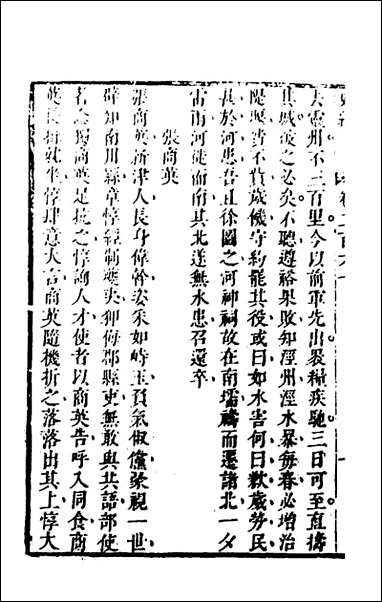 卷二百六十
去靈州不三百里今以前軍先出裹糧疾馳三日可至直擣
其城拔之必矣不聽遵裕果敗知涇州涇水暴每春必增治
隄堰費不貲歲饑守約罷其役或曰如水害何曰歉歲勞民
甚於河患吾且徐圖之河神祠故在南壖禱而遷諸北一夕
雷雨河徙而南其北遂無水患召還卒
張商英
張商英新津人長身偉幹姿采如峙玉負氣俶儻豪視一世
辟知南川縣章惇經制夔夷狎侮郡縣吏無敢與共語部使
者念獨商英足抗之惇詢人才使者以商英告呼入同食商
英長揖就坐惇肆意大言商英隨機折之落落出其上惇大